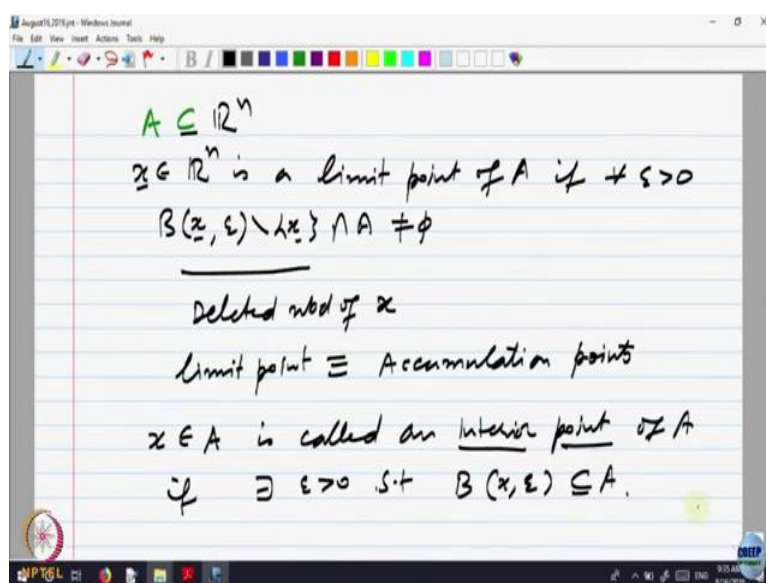 August16,2019.jnt - Windows Journal
File Edit View Insert Actions Tools Help
A ⊆ ℝⁿ
x ∈ ℝⁿ is a limit point of A if ∀ ε>0
B(x, ε) \ {x} ∩ A ≠ φ
Deleted nbd of x
limit point ≡ Accumulation points
x ∈ A is called an interior point of A
if ∃ ε>0 s.t B(x, ε) ⊆ A.
NPTEL
CDEEP
ENG
9:35 AM